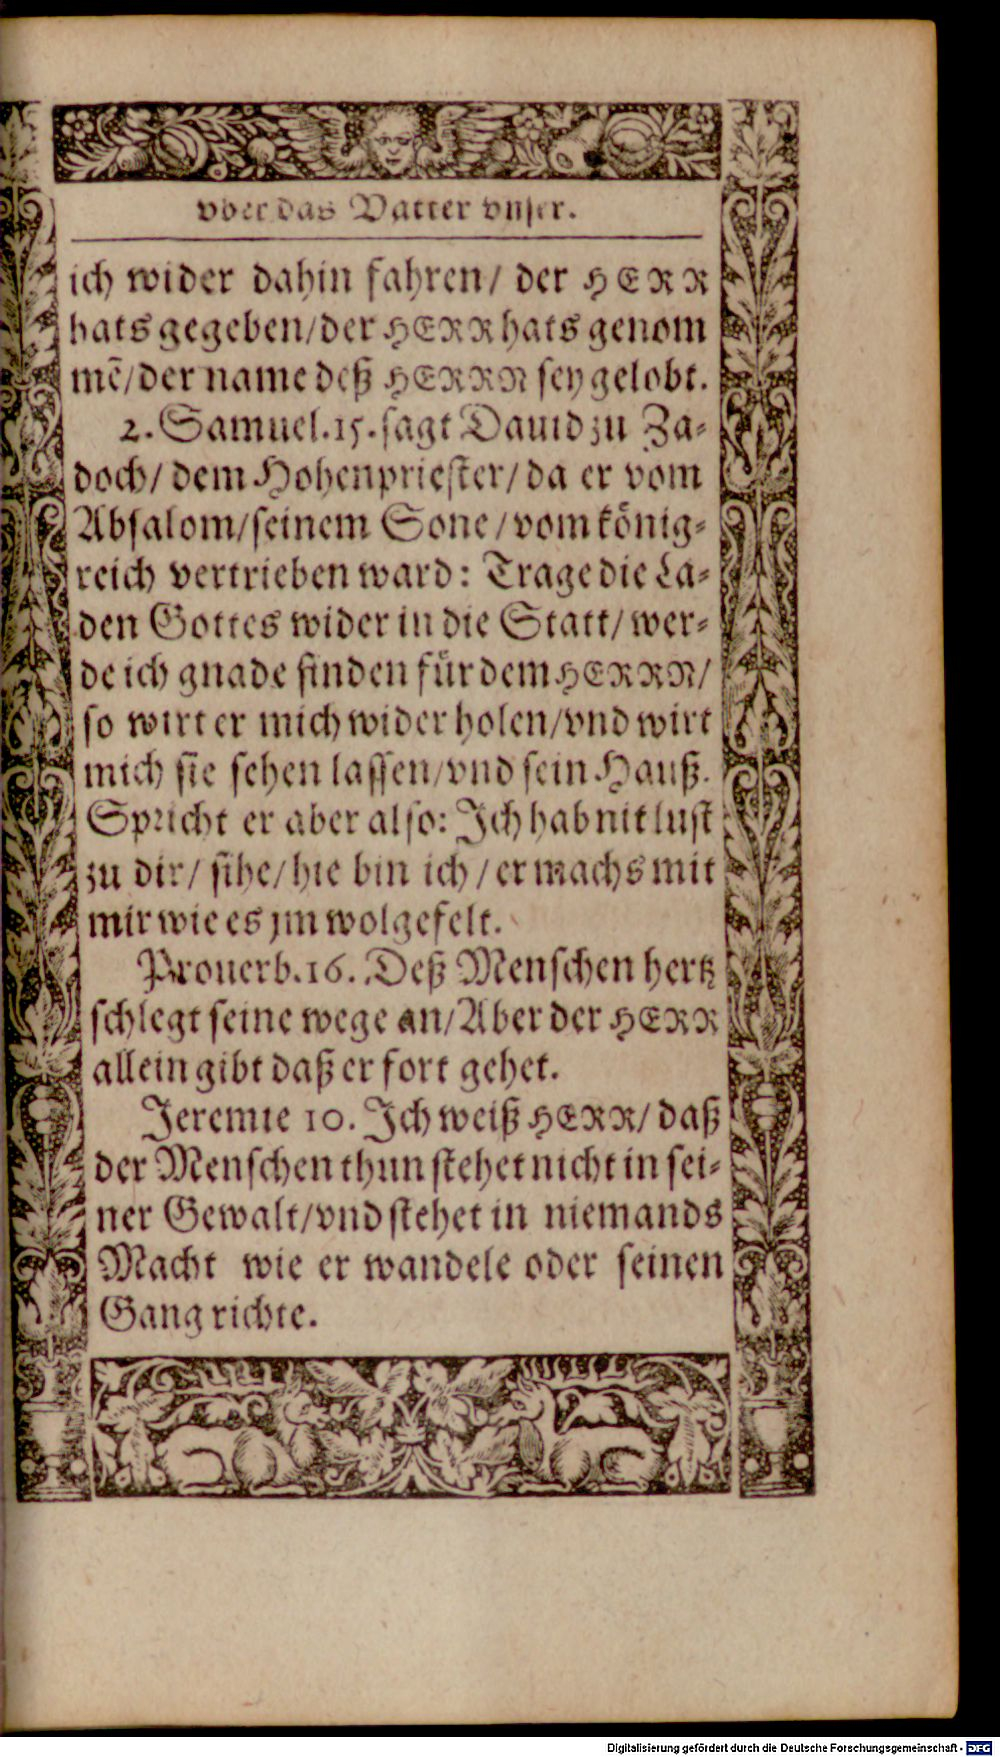 vber das Vatter vnser.
ich wider dahin fahren/ der HERR
hats gegeben/der HERR hats genom
mẽ/der name deß HERRN sey gelobt.
2. Samuel.15. sagt Dauid zu Za-
doch/ dem Hohenpriester/ da er vom
Absalom/seinem Sone/vom könig-
reich vertrieben ward: Trage die La-
den Gottes wider in die Statt/ wer-
de ich gnade finden für dem HERRN/
so wirt er mich wider holen/vnd wirt
mich sie sehen lassen/vnd sein Hauß.
Spricht er aber also: Jch hab nit lust
zu dir/ sihe/hie bin ich/er machs mit
mir wie es jm wolgefelt.
Prouerb.16. Deß Menschen hertz
schlegt seine wege an/Aber der HERR
allein gibt daß er fort gehet.
Jeremie 10. Jch weiß HERR/ daß
der Menschen thun stehet nicht in sei-
ner Gewalt/vnd stehet in niemands
Macht wie er wandele oder seinen
Gang richte.
Digitalisierung gefördert durch die Deutsche Forschungsgemeinschaft - DFG